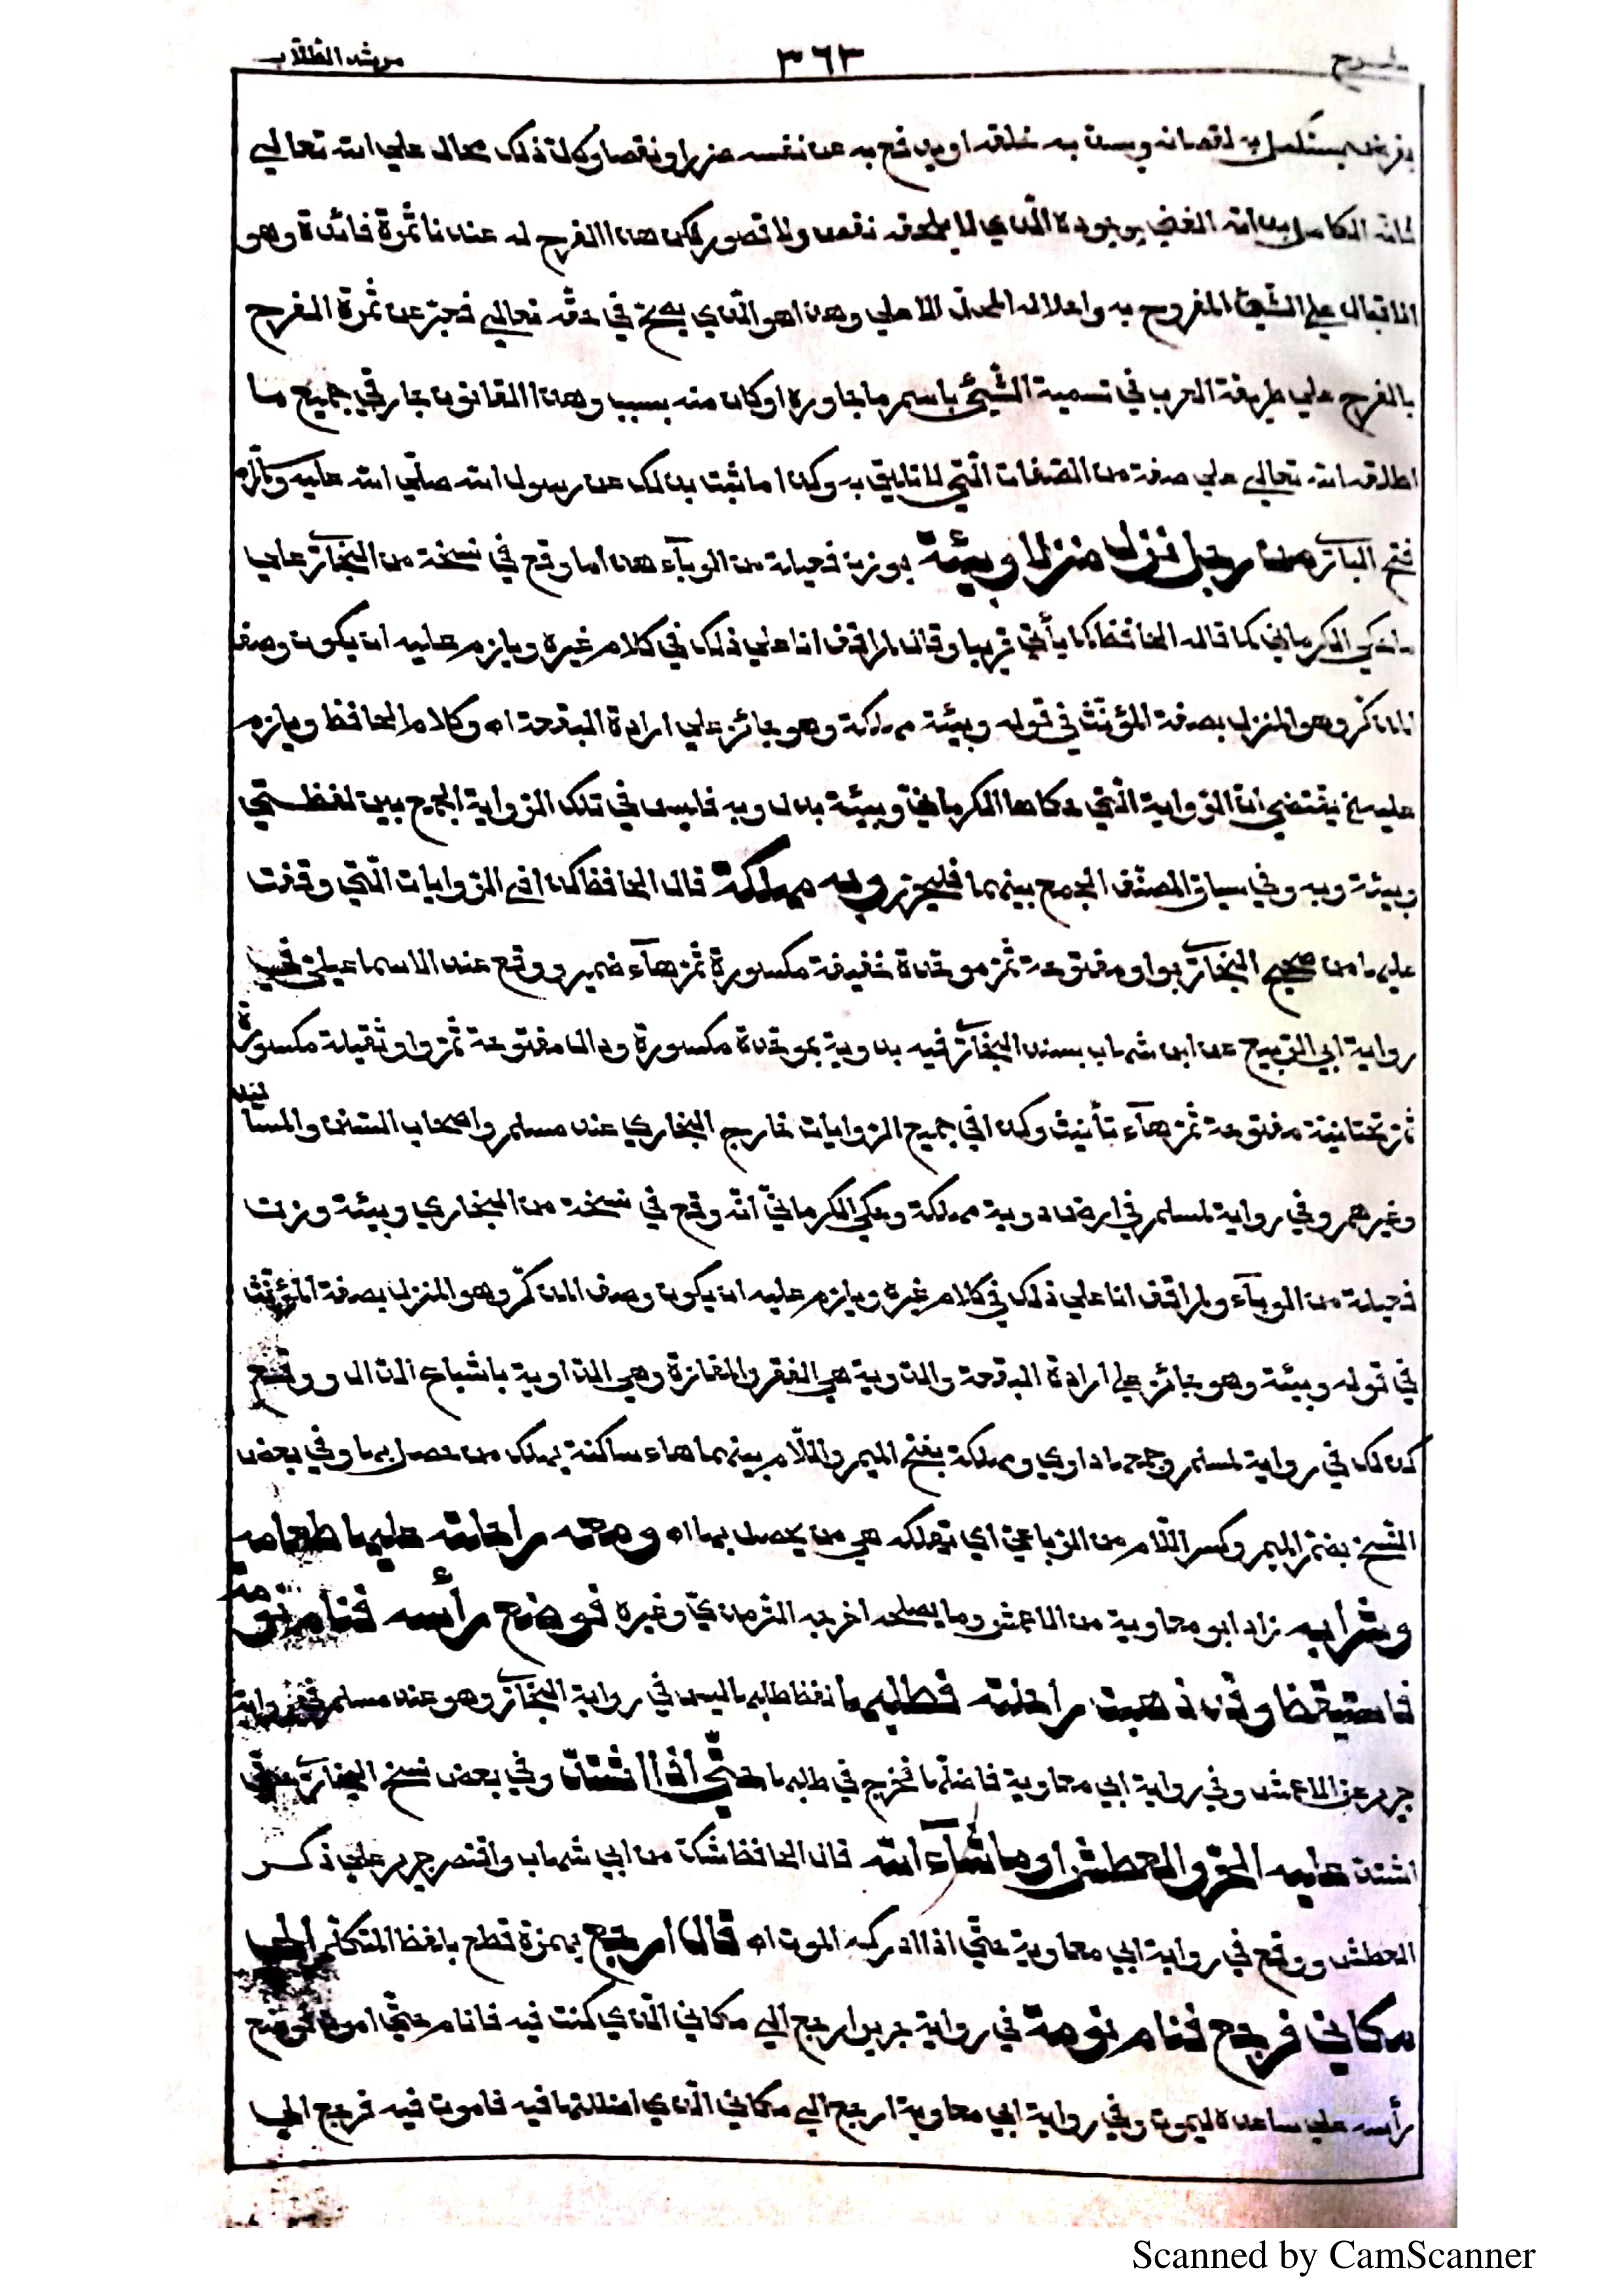 شرح ٣٦٣ مرشد الطلاب
بفرض يستكمل به نقصانه ويسد به خلقه او يدفع به عن نفسه ضررا ونقصا وكل ذلك محال على الله تعالى
لانه الكامل بذاته الغني بوجوده الذي لا يلحقه نقص ولا قصور لكن هذا الفرح له عندنا ثمرة فائدة وهو
الاقبال على الشيئ المفروح به واحلاله المحل الاعلى وهذا هو الذي يصح في حقه تعالى فعبر عن ثمرة الفرح
بالفرح على طريقة العرب في تسمية الشيئ باسم ما جاوره او كان منه بسبب وهذا القانون جار في جميع ما
اطلقه الله تعالى على صفة من الصفات التي لا تليق به وكذا ما ثبت بذلك عن رسول الله صلى الله عليه وسلم
فتح البار من رجل نزل منزلا وبيئة بوزن فعيلة من الوباء هذا ما وقع في نسخة من البخار على
ما حكي الكرماني كما قاله الحافظ كما يأتي قريبا وقال لم اقف انا على ذلك في كلام غيره ويلزم عليه ان يكون وصف
المذكر وهو المنزل بصفة المؤنث في قوله وبيئة مهلكة وهو جائز على ارادة البقعة اه وكلام الحافظ ويلزم
عليه الخ يقتضي ان الرواية التي حكاها الكرماني وبيئة بدل وبه فليس في تلك الرواية الجمع بين لفظتي
وبيئة وبه وفي سياق المصنف الجمع بينهما فليحرر وبه مهلكة قال الحافظ كذا في الروايات التي وقفت
عليها من صحيح البخار بواو مفتوحة ثم موحدة خفيفة مكسورة ثم هاء ضمير ووقع عند الاسماعيلي في
رواية ابي الربيع عن ابن شهاب بسند البخار فيه بدوية بموحدة مكسورة ودال مفتوحة ثم واو ثقيلة مكسورة
ثم تحتانية مفتوحة ثم هاء تأنيث وكذا في جميع الروايات خارج البخاري عند مسلم واصحاب السنن والمسانيد
وغيرهم وفي رواية لمسلم في ارض دوية مهلكة وحكي الكرماني انه وقع في نسخة من البخاري وبيئة وزن
فعيلة من الوباء ولم اقف انا على ذلك في كلام غيره ويلزم عليه ان يكون وصف المذكر وهو المنزل بصفة المؤنث
في قوله وبيئة وهو جائز على ارادة البقعة والدوية هي القفر والمفازة وهي الداوية باشباع الدال ووقع
كذلك في رواية لمسلم وجمعها داوي ومهلكة بفتح الميم واللام بينهما هاء ساكنة يهلك من حصل بها وفي بعض
النسخ بضم الميم وكسر اللام من الرباعي اي تهلك هي من يحصل بها اه ومعه راحلته عليها طعامه
وشرابه زاد ابو معاوية عن الاعمش وما يصلحه اخرجه الترمذي وغيره فوضع رأسه فنام نومة
فاستيقظ وقد ذهبت راحلته فطلبها لفظ طلبها ليس في رواية البخار وهو عند مسلم في رواية
جرير عن الاعمش وفي رواية ابي معاوية فاضلها فخرج في طلبها حتى اذا اشتد وفي بعض نسخ البخار حتى
اشتد عليه الحر والعطش او ما شاء الله قال الحافظ شك من ابي شهاب واقتصر جرير على ذكر
العطش ووقع في رواية ابي معاوية حتى اذا ادركه الموت اه قال ارجع بهمزة قطع بلفظ المتكلم الى
مكاني فرجع فنام نومة في رواية جرير ارجع الى مكاني الذي كنت فيه فانام حتى اموت فوضع
رأسه على ساعده ليموت وفي رواية ابي معاوية ارجع الى مكاني الذي اضللتها فيه فاموت فيه فرجع الى
Scanned by CamScanner